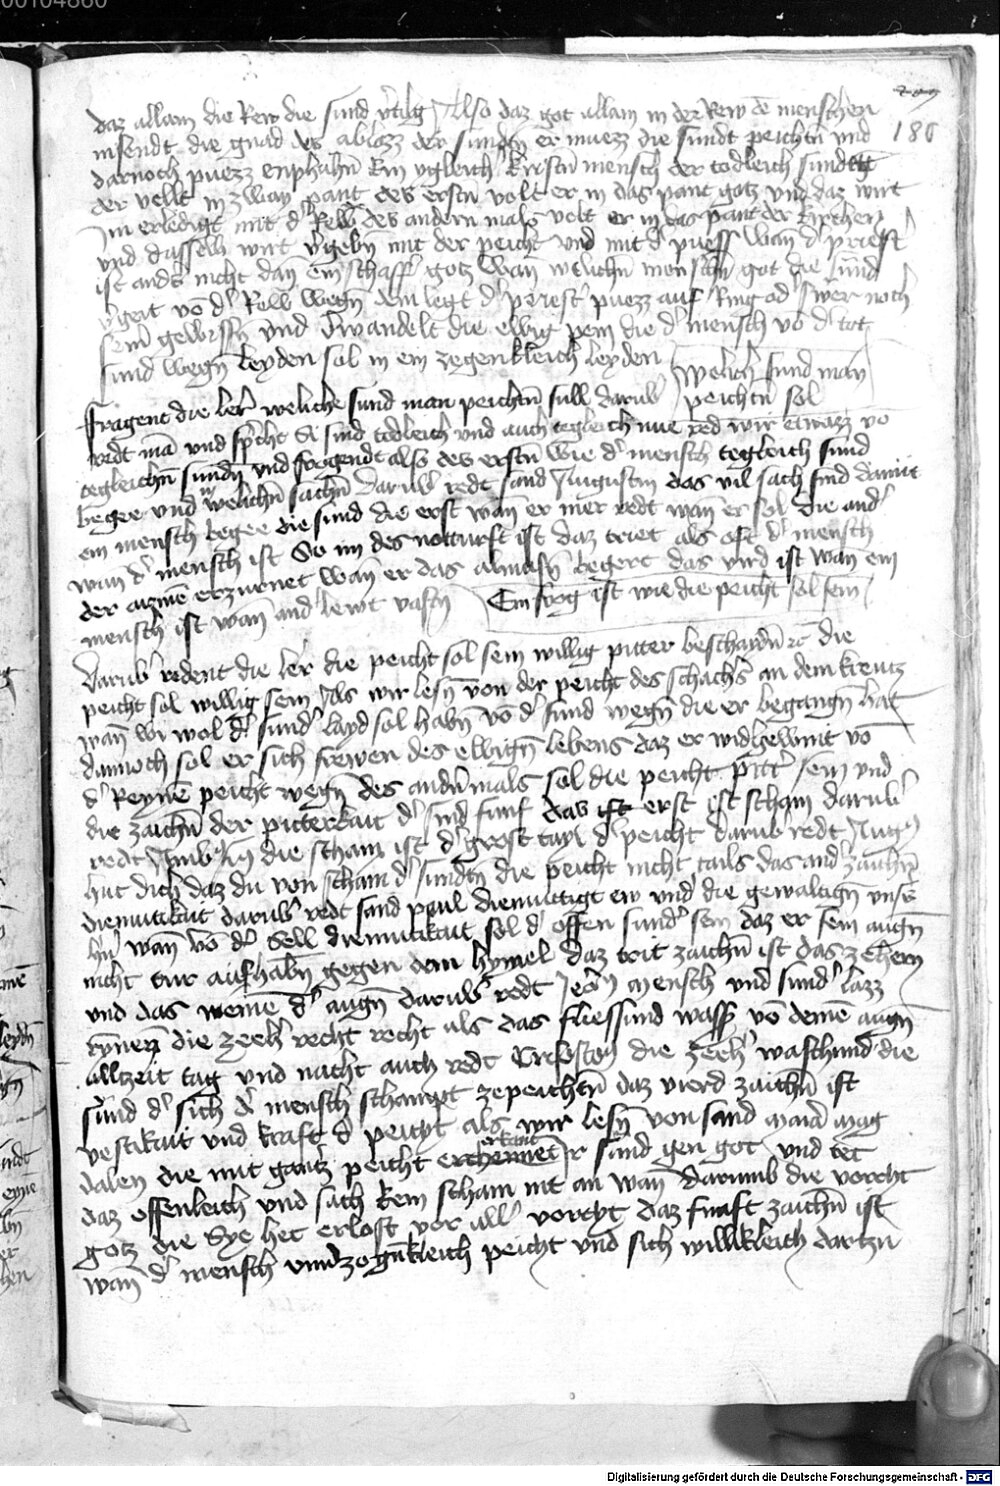 00104860
186
daz allain die Rew die sund v̓tilg Also daz got allain in der Rew dē menschen
insendt die gnad des ablazz der sundn̄ er muezz die sundt peichtn̄ und
darnoch puezz enphahn̄ Ein ygleich kristn̄ mensch der todleich sundet
der vellt in zway pant des erstn̄ velt er in das pant gotz und daz wirt
Im erledigt mit d̓ Rew des andern mals velt er in das pant der kirchen
und dasselb wirt v̓gebn̄ mit der peicht und mit d̓ puess Wan̄ d̓ priest̓
ist ands nicht dan̄ ein schaffer gotz Wan̄ welichn̄ menschn̄ got die sund
v̓geit vō d̓ Rew wegn̄ dem legt d̓ priest̓ puezz auf Ring od̓ swer noch
sein̄ gewissn̄ und v̓wandelt die ewig pein die d̓ mensch vō d̓ tot
sund wegn̄ leyden sol in ein zergenkleich leyden
Welich sund man
peichtn̄ sol
Fragent die ler̓ weliche sund man peichtn̄ sull darub̓
redt mā und sp̓cht Si sind todleich und auch tegleich nue red wir etwazz vō
tegleichn̄ sundn̄ und fragendt also des erstn̄ Wie d̓ mensch tegleich sund
begee und in welichn̄ sachn̄ Darub̓ redt sand Augustin das vil sach sind damit
ein mensch begee die sund die erst wan̄ er mer redt wan̄ er sol die and̓
wan̄ d̓ mensch ist So im des notturft ist daz drit als oft d̓ mensch
der armē erzurnet wan̄ er das almusn̄ begert das vird ist wan̄ ein
mensch ist wan̄ and̓ lewt vastn̄
Ein frag ist wie die peicht sol sein
Darub̓ redent die ler̓ die peicht sol sein willig pitter beschaidn̄ rc̄ die
peicht sol willig sein Als wir lesn̄ von der peicht des schachs̓ an dem kreutz
wan̄ wi wol d̓ sund̓ layd sol habn̄ vō d̓ sund wegn̄ die er begangn̄ hat
dannoch sol er sich frewen des ewign̄ lebens daz er widgewint vō
d̓ Reynē peicht wegn̄ des andn̄ mals sol die peicht pitt̓ sein und
die zaichn̄ der pitterkait d̓ sind funf das ist erst ist scham darub̓
redt die scham ist d̓ grost tayl d̓ peicht darub̓ redt
hut dich daz du von scham d̓ sundn̄ die peicht nicht tails das and̓ zaichn̄
diemutikait darub̓ redt sand paul diemutigt ew und̓ die gewaltign̄
wan̄ vō d̓ Sell diemutikait sol d̓ offen sund̓ sein daz er sein augn̄
nicht tur aufhabn̄ gegen dem hymel daz drit zaichn̄ ist das zehern
und das weinē d̓ augn̄ darub̓ redt mensch und sund̓ lazz
rynnen die zeeh̓ recht recht als das fliessund wass̓ vō deinē augn̄
allzeit tag und nacht auch redt die zeeh̓ waschund die
sund d̓ sich d̓ mensch schampt zepeichtn̄ daz vierd zaichn̄ ist
vestikait und kraft d̓ peicht als wir lesn̄ von sand maria mag
dalen die mit gantz peicht erkant Ir sund gen got und tet
daz offenleich und sach kein scham nit an wan̄ darumb die vorcht
gotz die Sye het erlost vor all̓ vorcht daz funft zaichn̄ ist
wan̄ d̓ mensch unu̓zogn̄kleich peicht und sich willikleich dartzu
Digitalisierung gefördert durch die Deutsche Forschungsgemeinschaft - DFG